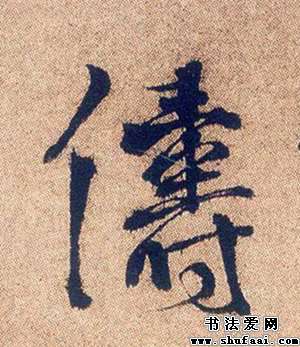 儔
书法爱网
www.shufaai.com